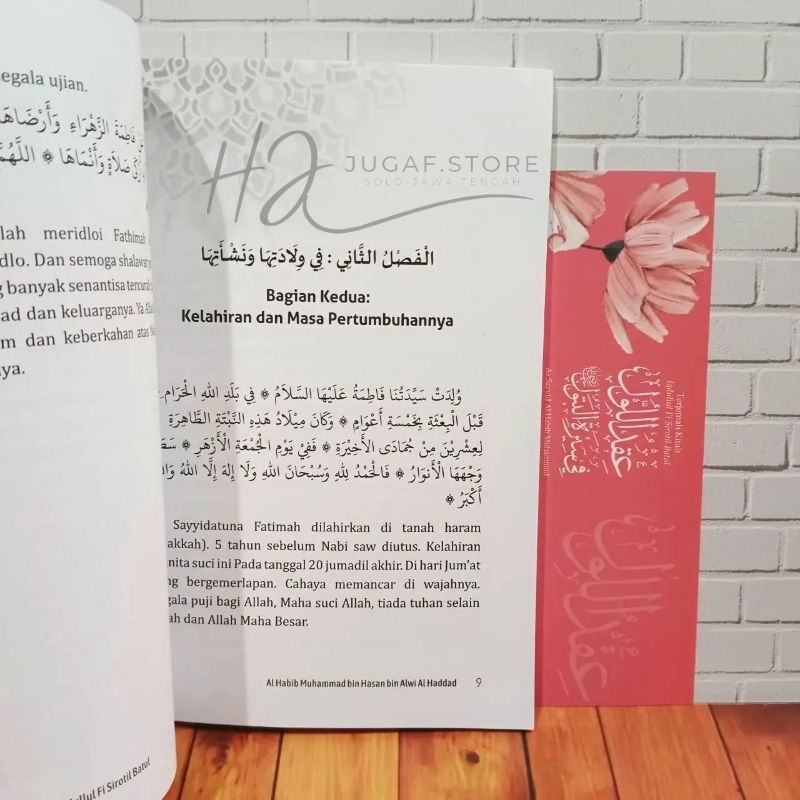 egala ujian.
فَاطِمَةَ الزَّهْرَاءِ وَأَرْضَاهَا
أَزْكَى صَلَاةٍ وَأَنْمَاهَا ۞ اللَّهُمَّ
lah meridloi Fathimah
dlo. Dan semoga shalawat
g banyak senantisa tercurah
ad dan keluarganya. Ya Allah
m dan keberkahan atas
ya.
Fi Sirotil Batul
HA
JUGAF.STORE
SOLO-JAWA TENGAH
الْفَصْلُ الثَّانِي : فِي وِلَادَتِهَا وَنَشْأَتِهَا
Bagian Kedua:
Kelahiran dan Masa Pertumbuhannya
وُلِدَتْ سَيِّدَتُنَا فَاطِمَةُ عَلَيْهَا السَّلَامُ ۞ فِي بَلَدِ اللهِ الْحَرَامِ
قَبْلَ الْبِعْثَةِ بِخَمْسَةِ أَعْوَامٍ ۞ وَكَانَ مِيْلَادُ هَذِهِ النَّبْتَةِ الطَّاهِرَةِ
لِعِشْرِينَ مِنْ جُمَادَى الْأَخِيْرَةِ ۞ فَفِيْ يَوْمِ الْجُمْعَةِ الْأَزْهَرِ ۞
وَجْهَهَا الْأَنْوَارُ ۞ فَالْحَمْدُ لِلهِ وَسُبْحَانَ اللهِ وَلَا إِلَهَ إِلَّا اللهُ
أَكْبَرُ ۞
Sayyidatuna Fatimah dilahirkan di tanah haram
akkah). 5 tahun sebelum Nabi saw diutus. Kelahiran
nita suci ini Pada tanggal 20 jumadil akhir. Di hari Jum'at
ng bergemerlapan. Cahaya memancar di wajahnya.
gala puji bagi Allah, Maha suci Allah, tiada tuhan selain
ah dan Allah Maha Besar.
Al Habib Muhammad bin Hasan bin Alwi Al Haddad 9
Terjemah Kitab
Iqdullul Fi Sirotil Batul
عقد اللول
في سيرة البتول